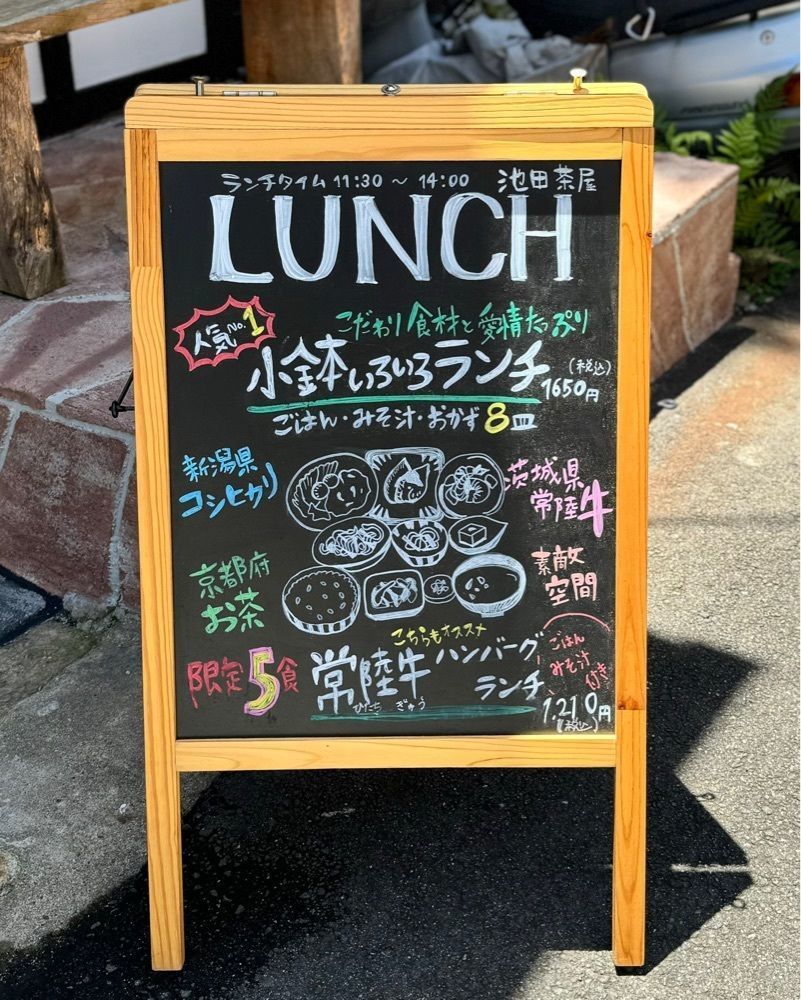 ランチタイム 11:30 ～ 14:00 池田茶屋
LUNCH
人気No.1
こだわり食材と愛情たっぷり
小鉢いろいろランチ
(税込)
1650円
ごはん・みそ汁・おかず8皿
新潟県
コシヒカリ
茨城県
常陸牛
京都府
お茶
素敵
空間
限定5食
こちらもオススメ
常陸牛ハンバーグ
ひたち ぎゅう
ランチ
ごはん
みそ汁
付き
1,210円
(税込)